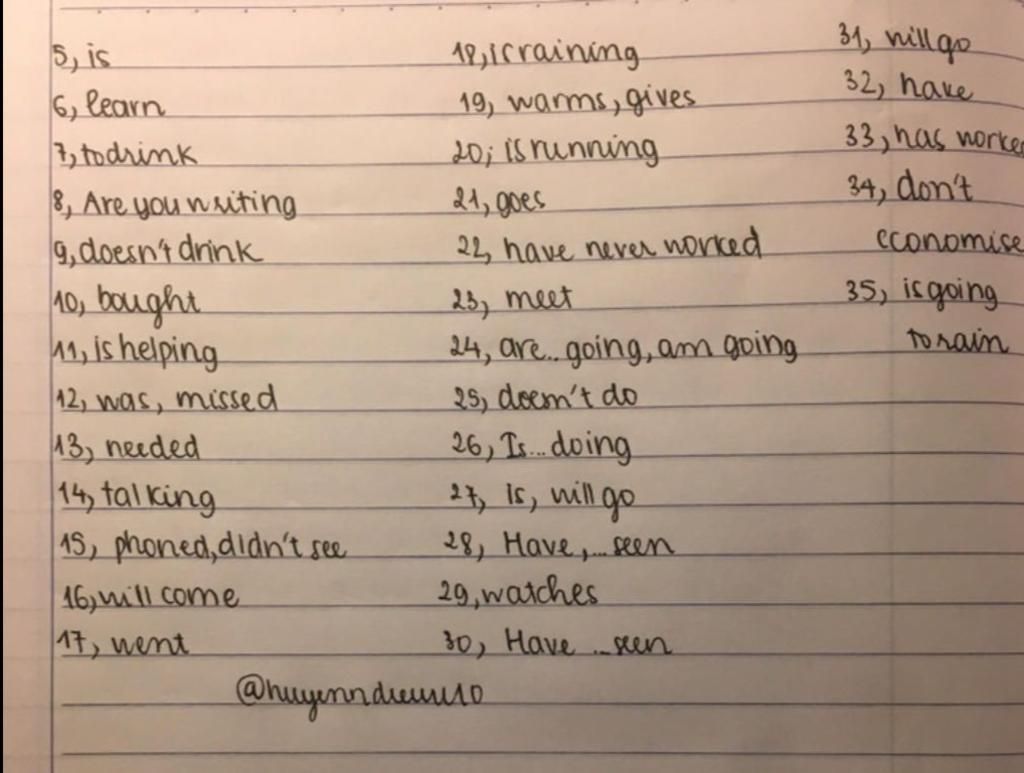 5, is
6, learn
7, to drink
8, Are you writing
9, doesn't drink
10, bought
11, is helping
12, was, missed
13, needed
14, talking
15, phoned, didn't see
16, will come
17, went
18, is raining
19, warms, gives
20, is running
21, goes
22, have never worked
23, meet
24, are.. going, am going
25, doesn't do
26, Is... doing
27, is, will go
28, Have, ... seen
29, watches
30, Have ... seen
31, will go
32, have
33, has worke
34, don't
economise
35, is going
to rain